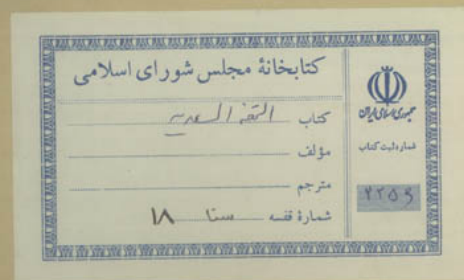 کتابخانهٔ مجلس شورای اسلامی
کتاب التحفة السعدیه
مؤلف
مترجم
شمارهٔ قفسه سنا ۱۸
جمهوری اسلامی ایران
شماره ثبت کتاب